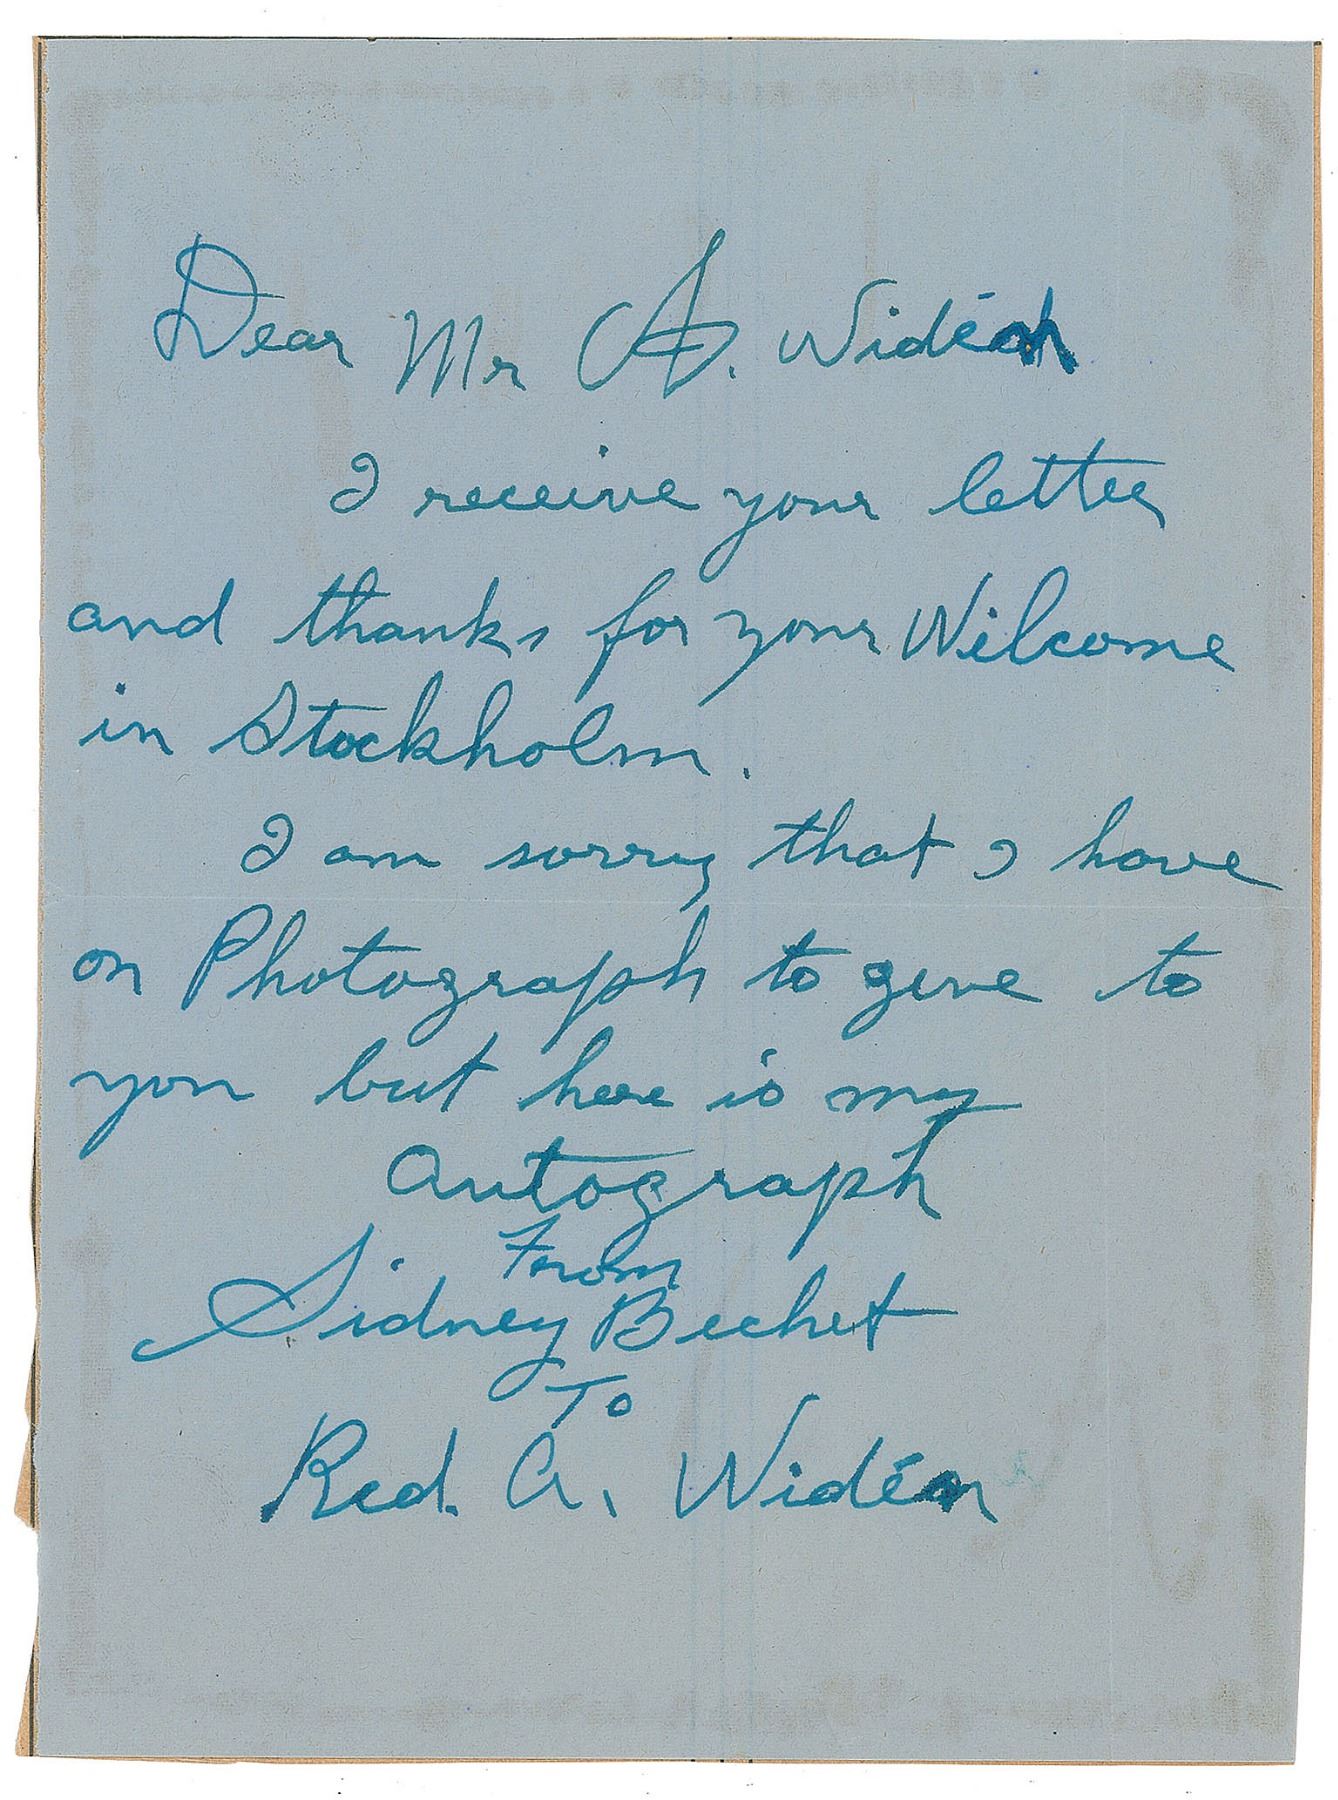 Dear Mr A. Widén
I receive your letter
and thanks for your Wilcome
in Stockholm.
I am sorry that I have
on Photograph to give to
you but here is my
Autograph
From
Sidney Bechet
To
Red. A. Widén